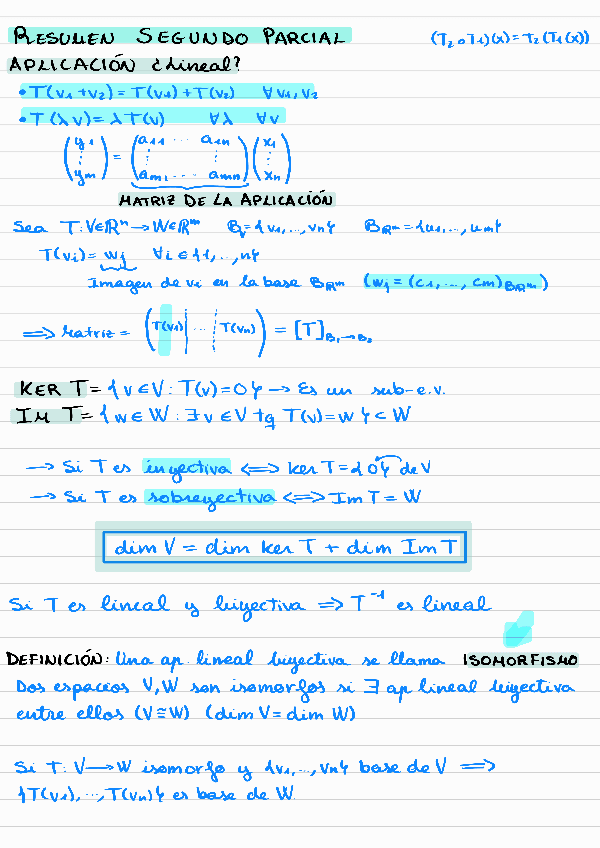 RESUMEN SEGUNDO PARCIAL
(T₂∘T₁)(x)=T₂(T₁(x))
APLICACIÓN ¿Lineal?
• T(v₁+v₂)=T(v₁)+T(v₂) ∀v₁,v₂
• T(λv)=λT(v) ∀λ ∀v
(y₁ ⋮ yₘ) = (a₁₁ ⋯ a₁ₙ ⋮ ⋮ aₘ₁ ⋯ aₘₙ)(x₁ ⋮ xₙ)
MATRIZ DE LA APLICACIÓN
Sea T:V∈ℝⁿ→W∈ℝᵐ Bᵥ={v₁,...,vₙ} Bℝᵐ={u₁,...,uₘ}
T(vᵢ)=wⱼ ∀i∈{1,..,n}
Imagen de vᵢ en la base Bℝᵐ (wⱼ=(c₁,...,cₘ)Bℝᵐ)
⟹ Matriz = (T(v₁)|...|T(vₙ)) = [T]B₁→B₂
KER T={v∈V: T(v)=0} → Es un sub-e.v.
IM T={w∈W: ∃v∈V tq T(v)=w}<W
→ Si T es inyectiva ⟺ ker T={0} de V
→ Si T es sobreyectiva ⟺ Im T=W
dim V = dim ker T + dim Im T
Si T es lineal y biyectiva ⟹ T⁻¹ es lineal
DEFINICIÓN: Una ap. lineal biyectiva se llama ISOMORFISMO
Dos espacios V,W son isomorfos si ∃ ap lineal biyectiva
entre ellos (V≅W) (dim V=dim W)
Si T: V→W isomorfo y {v₁,...,vₙ} base de V ⟹
{T(v₁),...,T(vₙ)} es base de W.